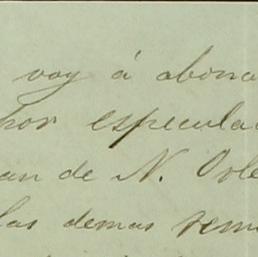 voy á abona
hor especula
an de N. Orle
las demas rem